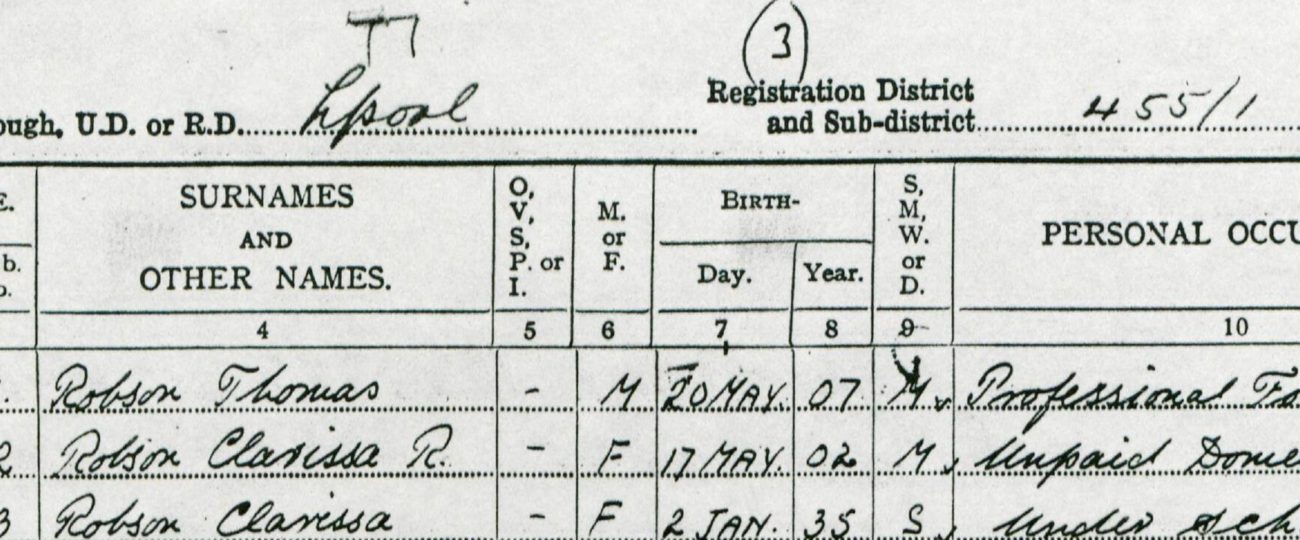 TT
3
ough, U.D. or R.D. Lpool
Registration District
and Sub-district 455/1
E.
b.
SURNAMES
AND
OTHER NAMES.
O,
V,
S,
P. or
I.
M.
or
F.
BIRTH-
Day. Year.
S,
M,
W.
or
D.
PERSONAL OCCU
4 5 6 7 8 9 10
Robson Thomas - M 20 MAY. 07 M Professional Fo
2 Robson Clarissa R. - F 17 MAY. 02 M Unpaid Dome
3 Robson Clarissa - F 2 JAN. 35 S Under Sch